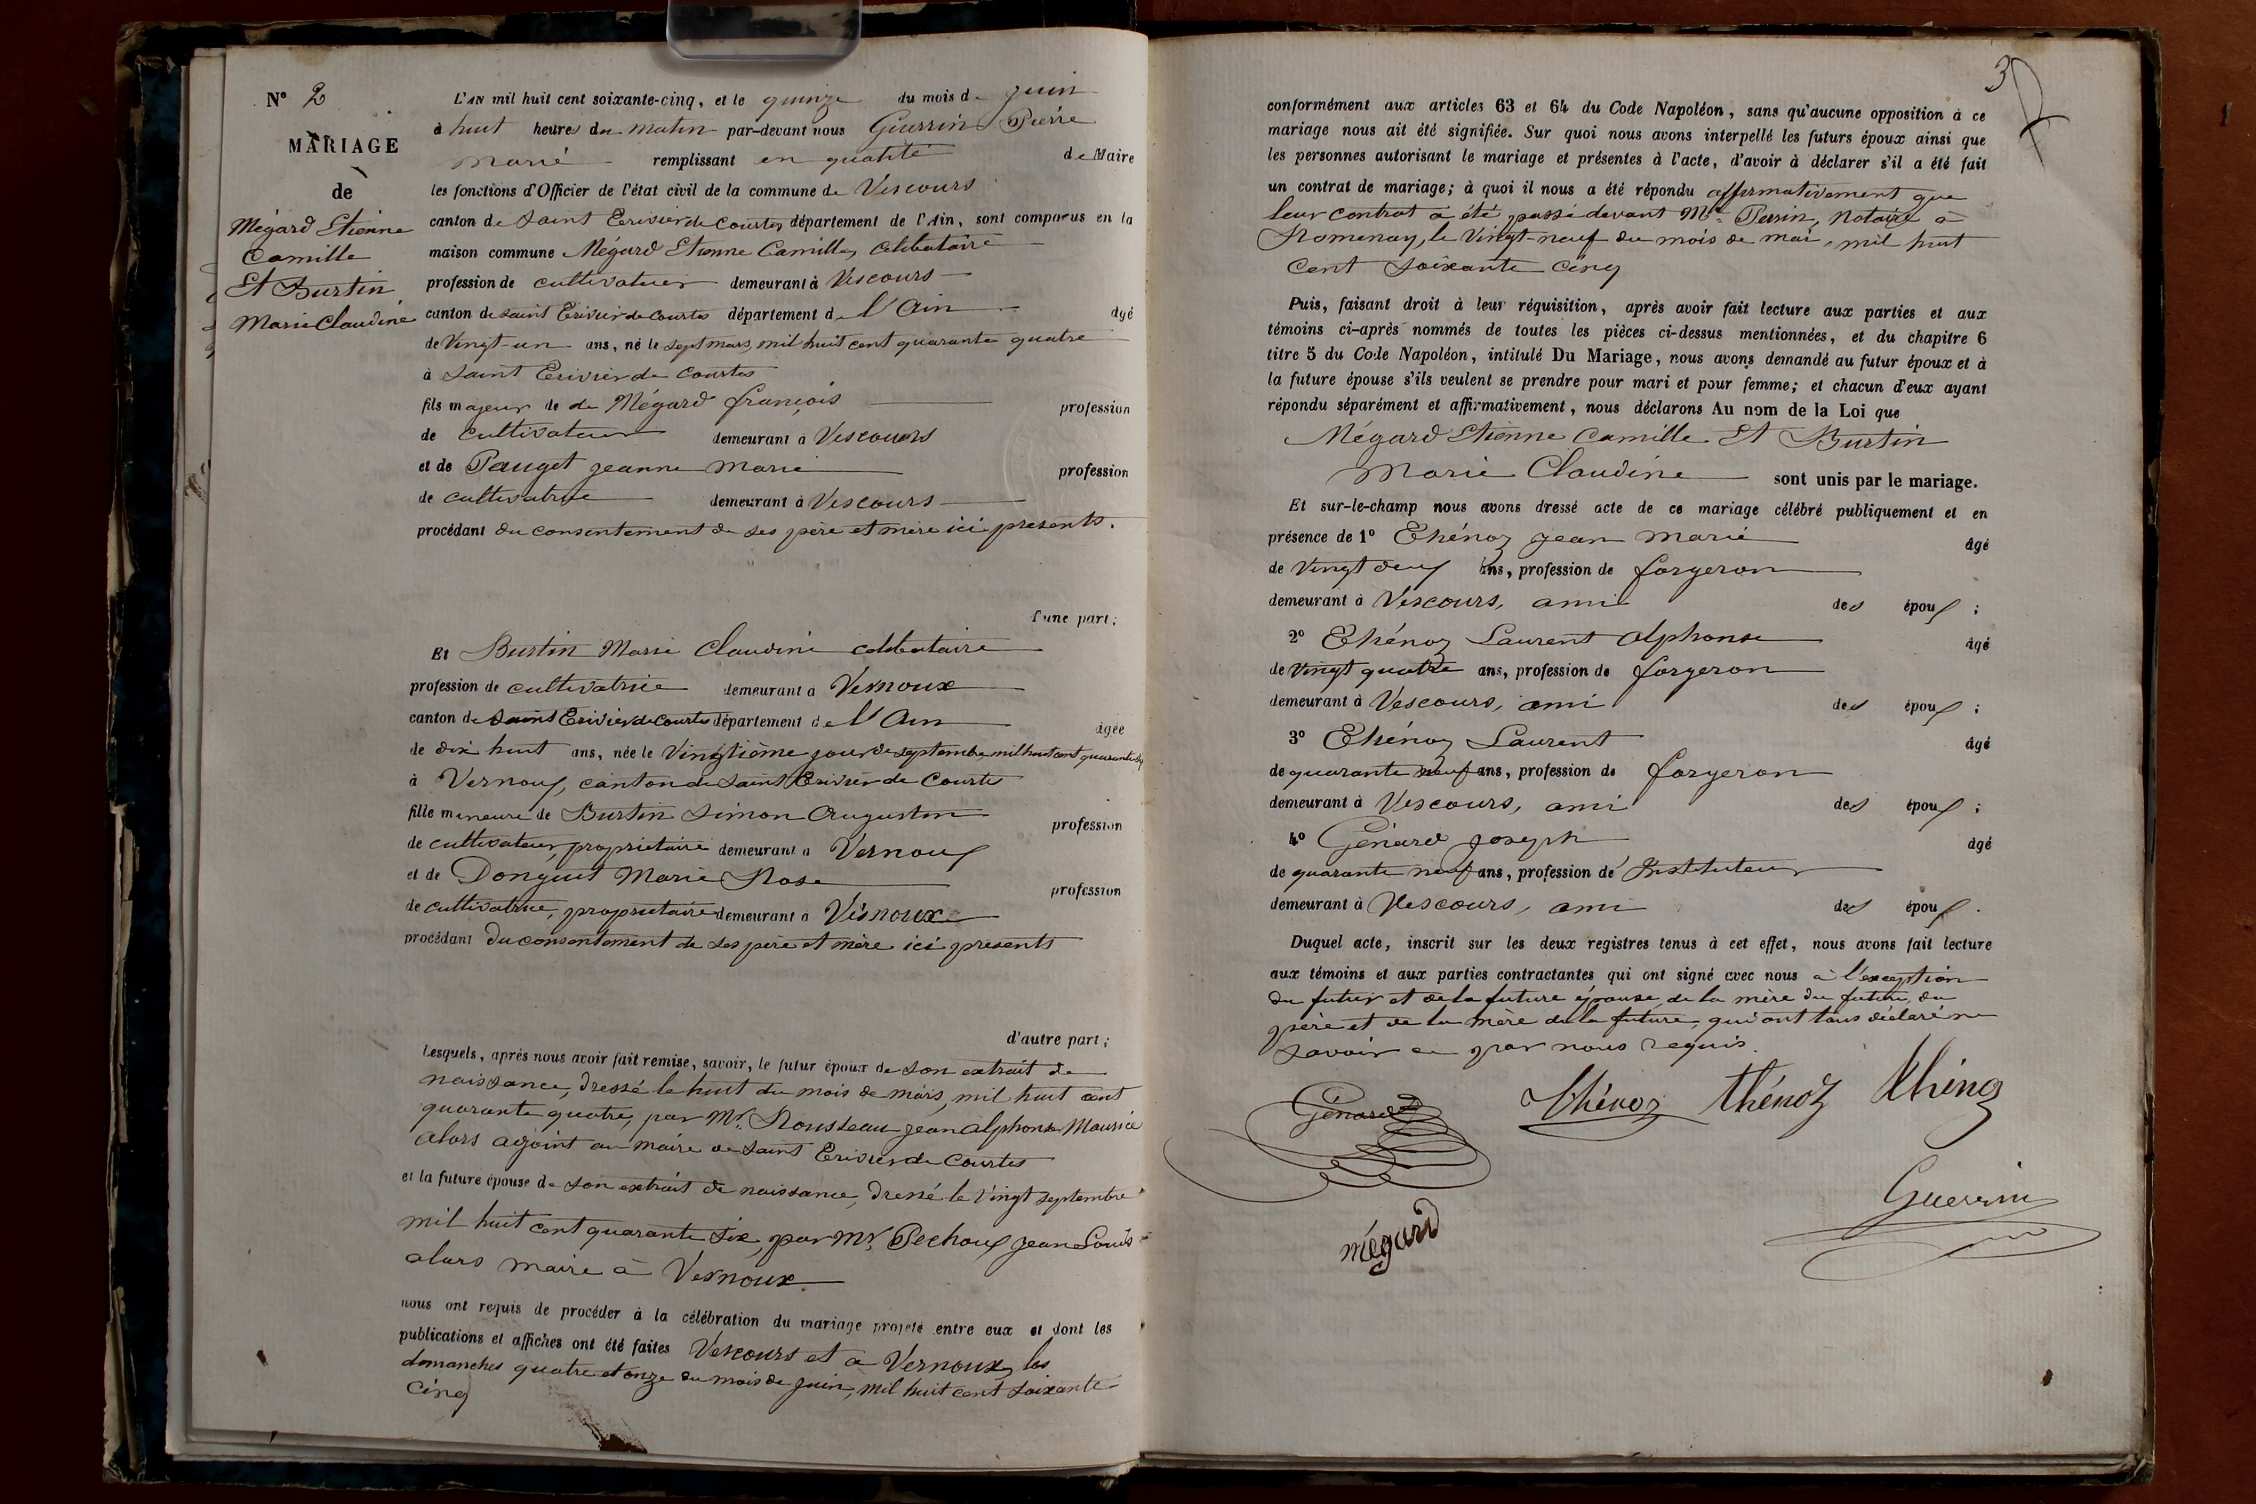 N° 2
MARIAGE
de
Mégard Etienne
Camille
Et Burtin
Marie Claudine
L'AN mil huit cent soixante-cinq, et le quinze du mois de juin
à huit heures du matin par-devant nous Guerrin Pierre
Marie remplissant en qualité de Maire
les fonctions d'Officier de l'état civil de la commune de Vescours
canton de Saint Trivier de Courtes département de l'Ain, sont comparus en la
maison commune Mégard Etienne Camille, célibataire
profession de cultivateur demeurant à Vescours
canton de Saint Trivier de Courtes département de l'Ain âgé
de Vingt-un ans, né le sept mars, mil huit cent quarante quatre
à Saint Trivier de Courtes
fils majeur de de Mégard françois profession
de cultivateur demeurant à Vescours
et de Pauget jeanne Marie profession
de cultivatrice demeurant à Vescours
procédant du consentement de ses père et mère ici présents.
d'une part;
Et Burtin Marie Claudine célibataire
profession de cultivatrice demeurant à Vernoux
canton de Saint Trivier de Courtes département de l'Ain âgée
de dix huit ans, née le Vingtième jour de septembre mil huit cent quarante six
à Vernoux, canton de Saint Trivier de Courtes
fille mineure de Burtin Simon Augustin profession
de cultivateur, propriétaire demeurant à Vernoux
et de Donguit Marie Rose profession
de cultivatrice, propriétaire demeurant à Vernoux
procédant du consentement de ses père et mère ici présents
d'autre part;
Lesquels, après nous avoir fait remise, savoir, le futur époux de son extrait de
naissance, dressé le huit du mois de mars, mil huit cent
quarante quatre, par Mr. Rousseau jean alphonse Maurice
alors adjoint au maire de Saint Trivier de Courtes
et la future épouse de son extrait de naissance, dressé le vingt septembre
mil huit cent quarante six, par Mr. Pechoux jean Louis
alors maire à Vernoux
nous ont requis de procéder à la célébration du mariage projeté entre eux et dont les
publications et affiches ont été faites Vescours et à Vernoux, les
dimanches quatre et onze du mois de juin, mil huit cent soixante-
cinq
3
conformément aux articles 63 et 64 du Code Napoléon, sans qu'aucune opposition à ce
mariage nous ait été signifiée. Sur quoi nous avons interpellé les futurs époux ainsi que
les personnes autorisant le mariage et présentes à l'acte, d'avoir à déclarer s'il a été fait
un contrat de mariage; à quoi il nous a été répondu affirmativement que
leur contrat a été passé devant Me. Perrin, Notaire à
Romenay, le Vingt-neuf du mois de mai, mil huit
cent soixante cinq
Puis, faisant droit à leur réquisition, après avoir fait lecture aux parties et aux
témoins ci-après nommés de toutes les pièces ci-dessus mentionnées, et du chapitre 6
titre 5 du Code Napoléon, intitulé Du Mariage, nous avons demandé au futur époux et à
la future épouse s'ils veulent se prendre pour mari et pour femme; et chacun d'eux ayant
répondu séparément et affirmativement, nous déclarons Au nom de la Loi que
Mégard Etienne Camille Et Burtin
Marie Claudine sont unis par le mariage.
Et sur-le-champ nous avons dressé acte de ce mariage célébré publiquement et en
présence de 1° Thénoz jean Marie âgé
de Vingt deux ans, profession de forgeron
demeurant à Vescours, ami des époux;
2° Thénoz Laurent Alphonse âgé
de vingt quatre ans, profession de forgeron
demeurant à Vescours, ami des époux;
3° Thénoz Laurent âgé
de quarante neuf ans, profession de forgeron
demeurant à Vescours, ami des époux;
4° Génard joseph âgé
de quarante neuf ans, profession de Instituteur
demeurant à Vescours, ami des époux.
Duquel acte, inscrit sur les deux registres tenus à cet effet, nous avons fait lecture
aux témoins et aux parties contractantes qui ont signé avec nous à l'exception
du futur et de la future épouse, de la mère du futur, du
père et de la mère de la future, qui ont tous déclaré ne
savoir en par nous requis.
Génard Thénoz Thénoz Thénoz
Guerrin
mégard